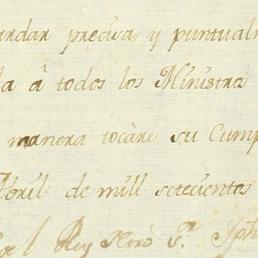 ardar precisa y puntualm
la â todos los Ministra
manera tocàre su Cump
Abril de mill setecientos
el Rey Nrô S.r Jph